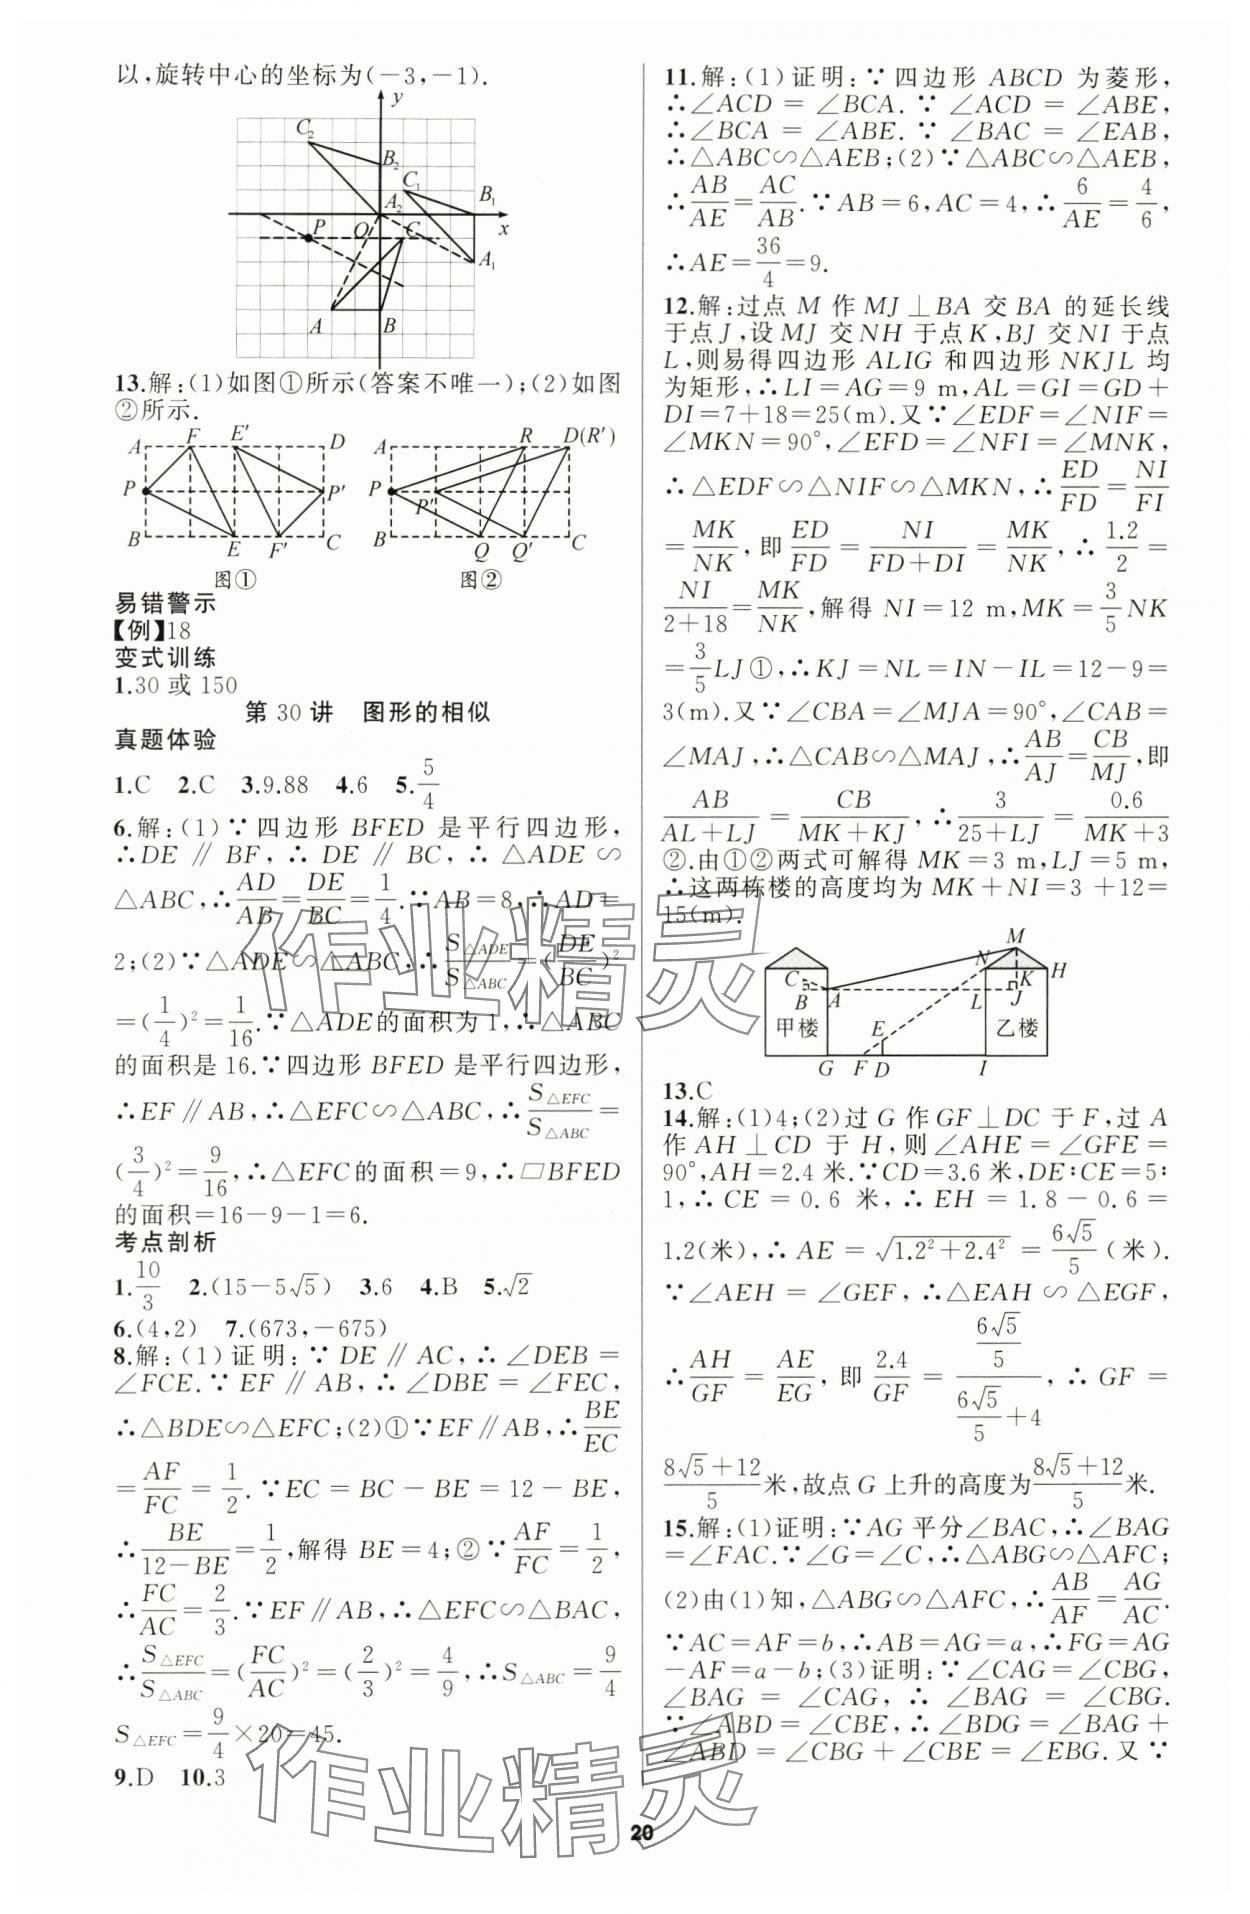 以,旋转中心的坐标为(-3,-1).
y
C₂
B₂
C₁
B₁
A₂
O
x
P
C
A₁
A
B
13.解:(1)如图①所示(答案不唯一);(2)如图
②所示.
A F E′ D
P P′
B E F′ C
图①
A R D(R′)
P P′
B Q Q′ C
图②
易错警示
【例】18
变式训练
1.30 或 150
第 30 讲 图形的相似
真题体验
1.C 2.C 3.9.88 4.6 5.5/4
6.解:(1)∵四边形 BFED 是平行四边形,
∴DE∥BF,∴DE∥BC,∴△ADE∽
△ABC,∴AD/AB=DE/BC=1/4.∵AB=8,∴AD=
2;(2)∵△ADE∽△ABC,∴S△ADE/S△ABC=(DE/BC)²
=(1/4)²=1/16.∵△ADE的面积为1,∴△ABC
的面积是 16.∵四边形 BFED 是平行四边形,
∴EF∥AB,∴△EFC∽△ABC,∴S△EFC/S△ABC=
(3/4)²=9/16,∴△EFC的面积=9,∴□BFED
的面积=16-9-1=6.
考点剖析
1.10/3 2.(15-5√5) 3.6 4.B 5.√2
6.(4,2) 7.(673,-675)
8.解:(1)证明:∵DE∥AC,∴∠DEB=
∠FCE.∵EF∥AB,∴∠DBE=∠FEC,
∴△BDE∽△EFC;(2)①∵EF∥AB,∴BE/EC
=AF/FC=1/2.∵EC=BC-BE=12-BE,
∴BE/(12-BE)=1/2,解得 BE=4;②∵AF/FC=1/2,
∴FC/AC=2/3.∵EF∥AB,∴△EFC∽△BAC,
∴S△EFC/S△ABC=(FC/AC)²=(2/3)²=4/9,∴S△ABC=9/4
S△EFC=9/4×20=45.
9.D 10.3
11.解:(1)证明:∵四边形 ABCD 为菱形,
∴∠ACD=∠BCA.∵∠ACD=∠ABE,
∴∠BCA=∠ABE.∵∠BAC=∠EAB,
∴△ABC∽△AEB;(2)∵△ABC∽△AEB,
∴AB/AE=AC/AB.∵AB=6,AC=4,∴6/AE=4/6,
∴AE=36/4=9.
12.解:过点 M 作 MJ⊥BA 交 BA 的延长线
于点J,设 MJ 交 NH 于点 K,BJ 交 NI 于点
L,则易得四边形 ALIG 和四边形 NKJL 均
为矩形,∴LI=AG=9 m,AL=GI=GD+
DI=7+18=25(m).又∵∠EDF=∠NIF=
∠MKN=90°,∠EFD=∠NFI=∠MNK,
∴△EDF∽△NIF∽△MKN,∴ED/FD=NI/FI
=MK/NK,即ED/FD=NI/(FD+DI)=MK/NK,∴1.2/2=
NI/(2+18)=MK/NK,解得 NI=12 m,MK=3/5NK
=3/5LJ①,∴KJ=NL=IN-IL=12-9=
3(m).又∵∠CBA=∠MJA=90°,∠CAB=
∠MAJ,∴△CAB∽△MAJ,∴AB/AJ=CB/MJ,即
AB/(AL+LJ)=CB/(MK+KJ),∴3/(25+LJ)=0.6/(MK+3)
②.由①②两式可解得 MK=3 m,LJ=5 m,
∴这两栋楼的高度均为 MK+NI=3+12=
15(m).
M
N H
C K
B A L J
甲楼 E 乙楼
G F D I
13.C
14.解:(1)4;(2)过 G 作 GF⊥DC 于 F,过 A
作 AH⊥CD 于 H,则∠AHE=∠GFE=
90°,AH=2.4 米.∵CD=3.6 米,DE∶CE=5∶
1,∴CE=0.6 米,∴EH=1.8-0.6=
1.2(米),∴AE=√(1.2²+2.4²)=6√5/5(米).
∵∠AEH=∠GEF,∴△EAH∽△EGF,
∴AH/GF=AE/EG,即2.4/GF=(6√5/5)/(6√5/5+4),∴GF=
(8√5+12)/5米,故点 G 上升的高度为(8√5+12)/5米.
15.解:(1)证明:∵AG 平分∠BAC,∴∠BAG
=∠FAC.∵∠G=∠C,∴△ABG∽△AFC;
(2)由(1)知,△ABG∽△AFC,∴AB/AF=AG/AC.
∵AC=AF=b,∴AB=AG=a,∴FG=AG
-AF=a-b;(3)证明:∵∠CAG=∠CBG,
∠BAG=∠CAG,∴∠BAG=∠CBG.
∵∠ABD=∠CBE,∴∠BDG=∠BAG+
∠ABD=∠CBG+∠CBE=∠EBG.又∵
作业精灵
作业精灵
20